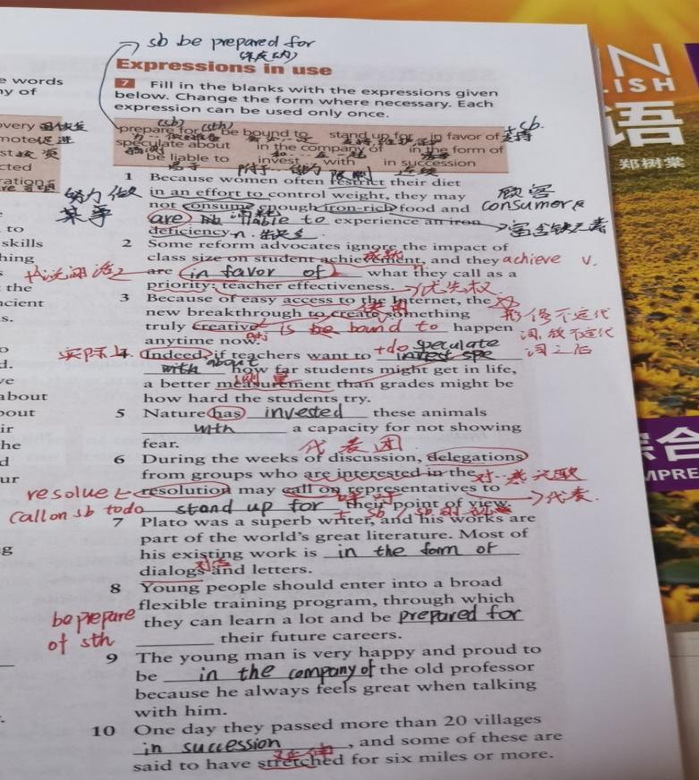 sb be prepared for
Expressions in use
7 Fill in the blanks with the expressions given
below. Change the form where necessary. Each
expression can be used only once.
(sb) (sth)
prepare for be bound to stand up for in favor of 支持
speculate about in the company of in the form of
be liable to invest … with in succession
e words
ny of
1 Because women often restrict their diet
in an effort to control weight, they may
not consume enough iron-rich food and
are liable to experience an iron
deficiency.
努力做
某事
顾客
consumer
n.
2 Some reform advocates ignore the impact of
class size on student achievement, and they
are in favor of what they call as a
priority: teacher effectiveness.
achieve v.
优先权
3 Because of easy access to the Internet, the
new breakthrough to create something
truly creative is be bound to happen
anytime now.
形容不定代
词,放不定代
词之后
实际上
4 Indeed, if teachers want to speculate
about how far students might get in life,
a better measurement than grades might be
how hard the students try.
+do
with
测量
5 Nature has invested these animals
with a capacity for not showing
fear.
代表团
6 During the weeks of discussion, delegations
from groups who are interested in the
resolution may call on representatives to
stand up for their point of view.
对…感兴趣
resolue
call on sb to do
代表.
7 Plato was a superb writer, and his works are
part of the world's great literature. Most of
his existing work is in the form of
dialogs and letters.
8 Young people should enter into a broad
flexible training program, through which
they can learn a lot and be prepared for
their future careers.
be prepare
of sth
9 The young man is very happy and proud to
be in the company of the old professor
because he always feels great when talking
with him.
10 One day they passed more than 20 villages
in succession, and some of these are
said to have stretched for six miles or more.
延伸
to
skills
hing
the
about
bout
ir
he
d
ur
g
N
LISH
语
郑树棠
综合
MPRE